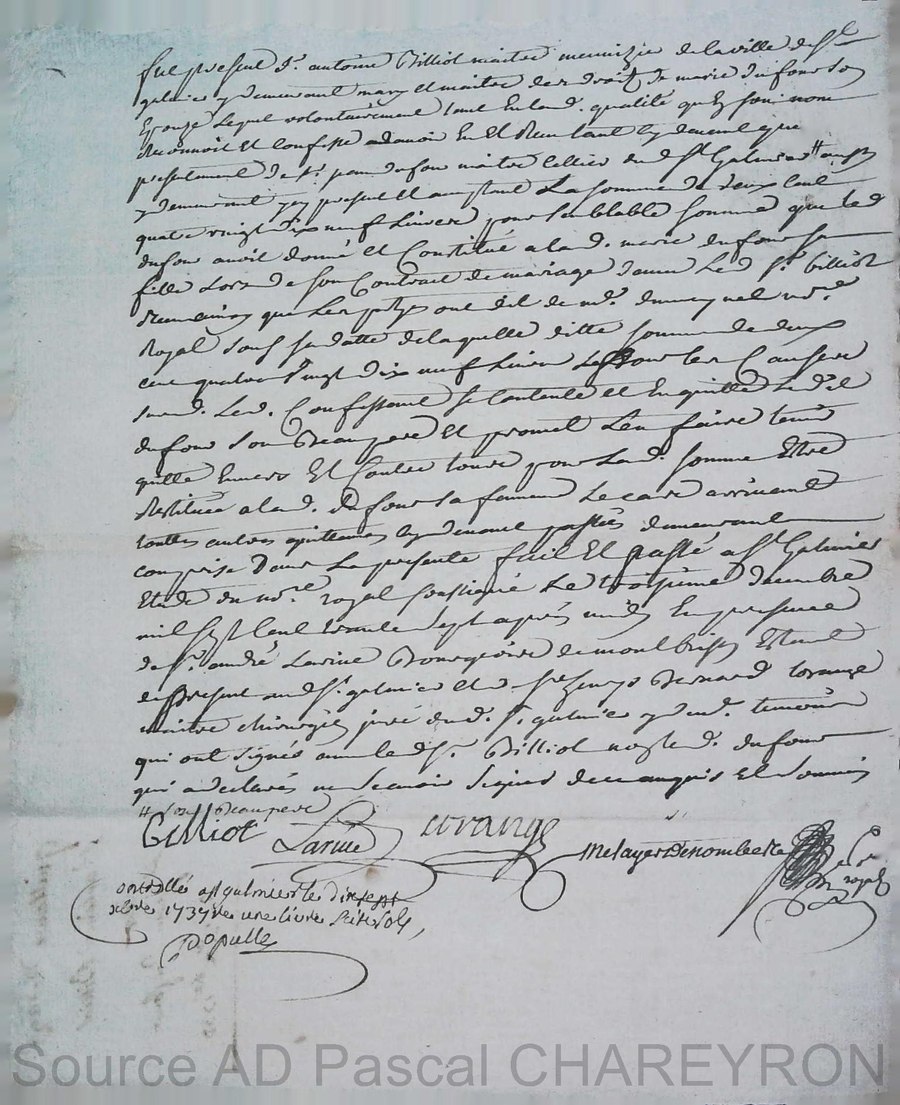 fut present Sr. antoine Gilliot maitre menuizie de la ville de St
galmier y demeurant mary et maitre des droits de marie dufour son
Epouze Lequel volontairement tant En lad. qualité qu'En son nom
reconnoit et confesse avoir En et Reçu tant cy devant que
presentement de Sr. dufour maitre cellier du d St Galmier # aussy
y demeurant icy present et acceptant La somme de deux cent
quatre vingt dix neuf Livres pour semblable somme que led
dufour avoit donné et Constitué a lad. marie dufour sa
fille Lors de son Contract de mariage avec Le d Sr. Gilliot
que Les partyes ont dit de me. nore.
Royal sous sa datte de laquelle ditte somme de deux
cent quatre Vingt dix neuf Livres pour les Causes
susd. Led. Confessant se Contente et En quitte Le d.
dufour son Beaupere et promet L'en faire tenir
quitte Envers Et Contre tous pour Lad. somme Estre
Restituée a lad. dufour sa femme Le cas arrivant
touttes autres quittances cy devant passées demeurant
comprise dans La presente fait Et passé a St Galmier
Etude du nore. royal soussigné Le troisieme decembre
mil sept Cent trente sept apres midy En presence
de Sr. andré Larive Bourgeois de montbrison Estant
de present aud St. galmier et de Sr Bernard lorange
maitre chirurgien juré dud. St. galmier y dem. temoins
qui ont signés avec le d Sr. Gilliot non led. dufour
qui a declaré ne Scavoir Signer de ce enquis et sommé
# son Beaupere
Gilliot Larive lorange
metayer Denombre
royal
controllé a St galmier le dix sept
xbre 1737 re une livre seize sols
Populle
Source AD Pascal CHAREYRON